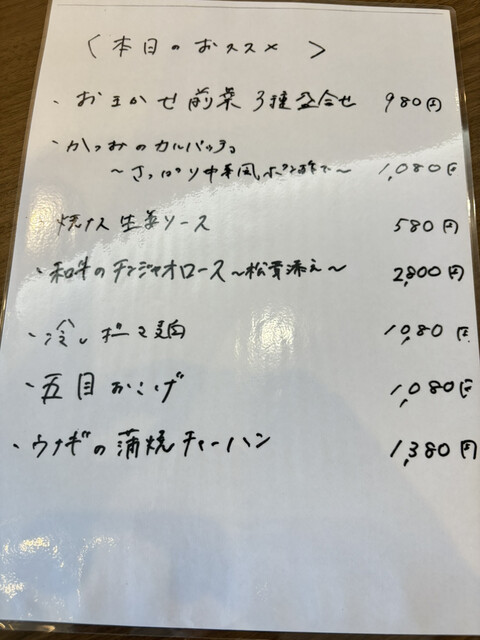 〈本日のおススメ〉
・おまかせ前菜3種盛合せ 980円
・かつおのカルパッチョ
～さっぱり中華風ポン酢で～ 1,080円
焼ナス生姜ソース 580円
・和牛のチンジャオロース～松茸添え～ 2,800円
・冷し担々麺 1,080円
・五目おこげ 1,080円
・ウナギの蒲焼チャーハン 1,380円